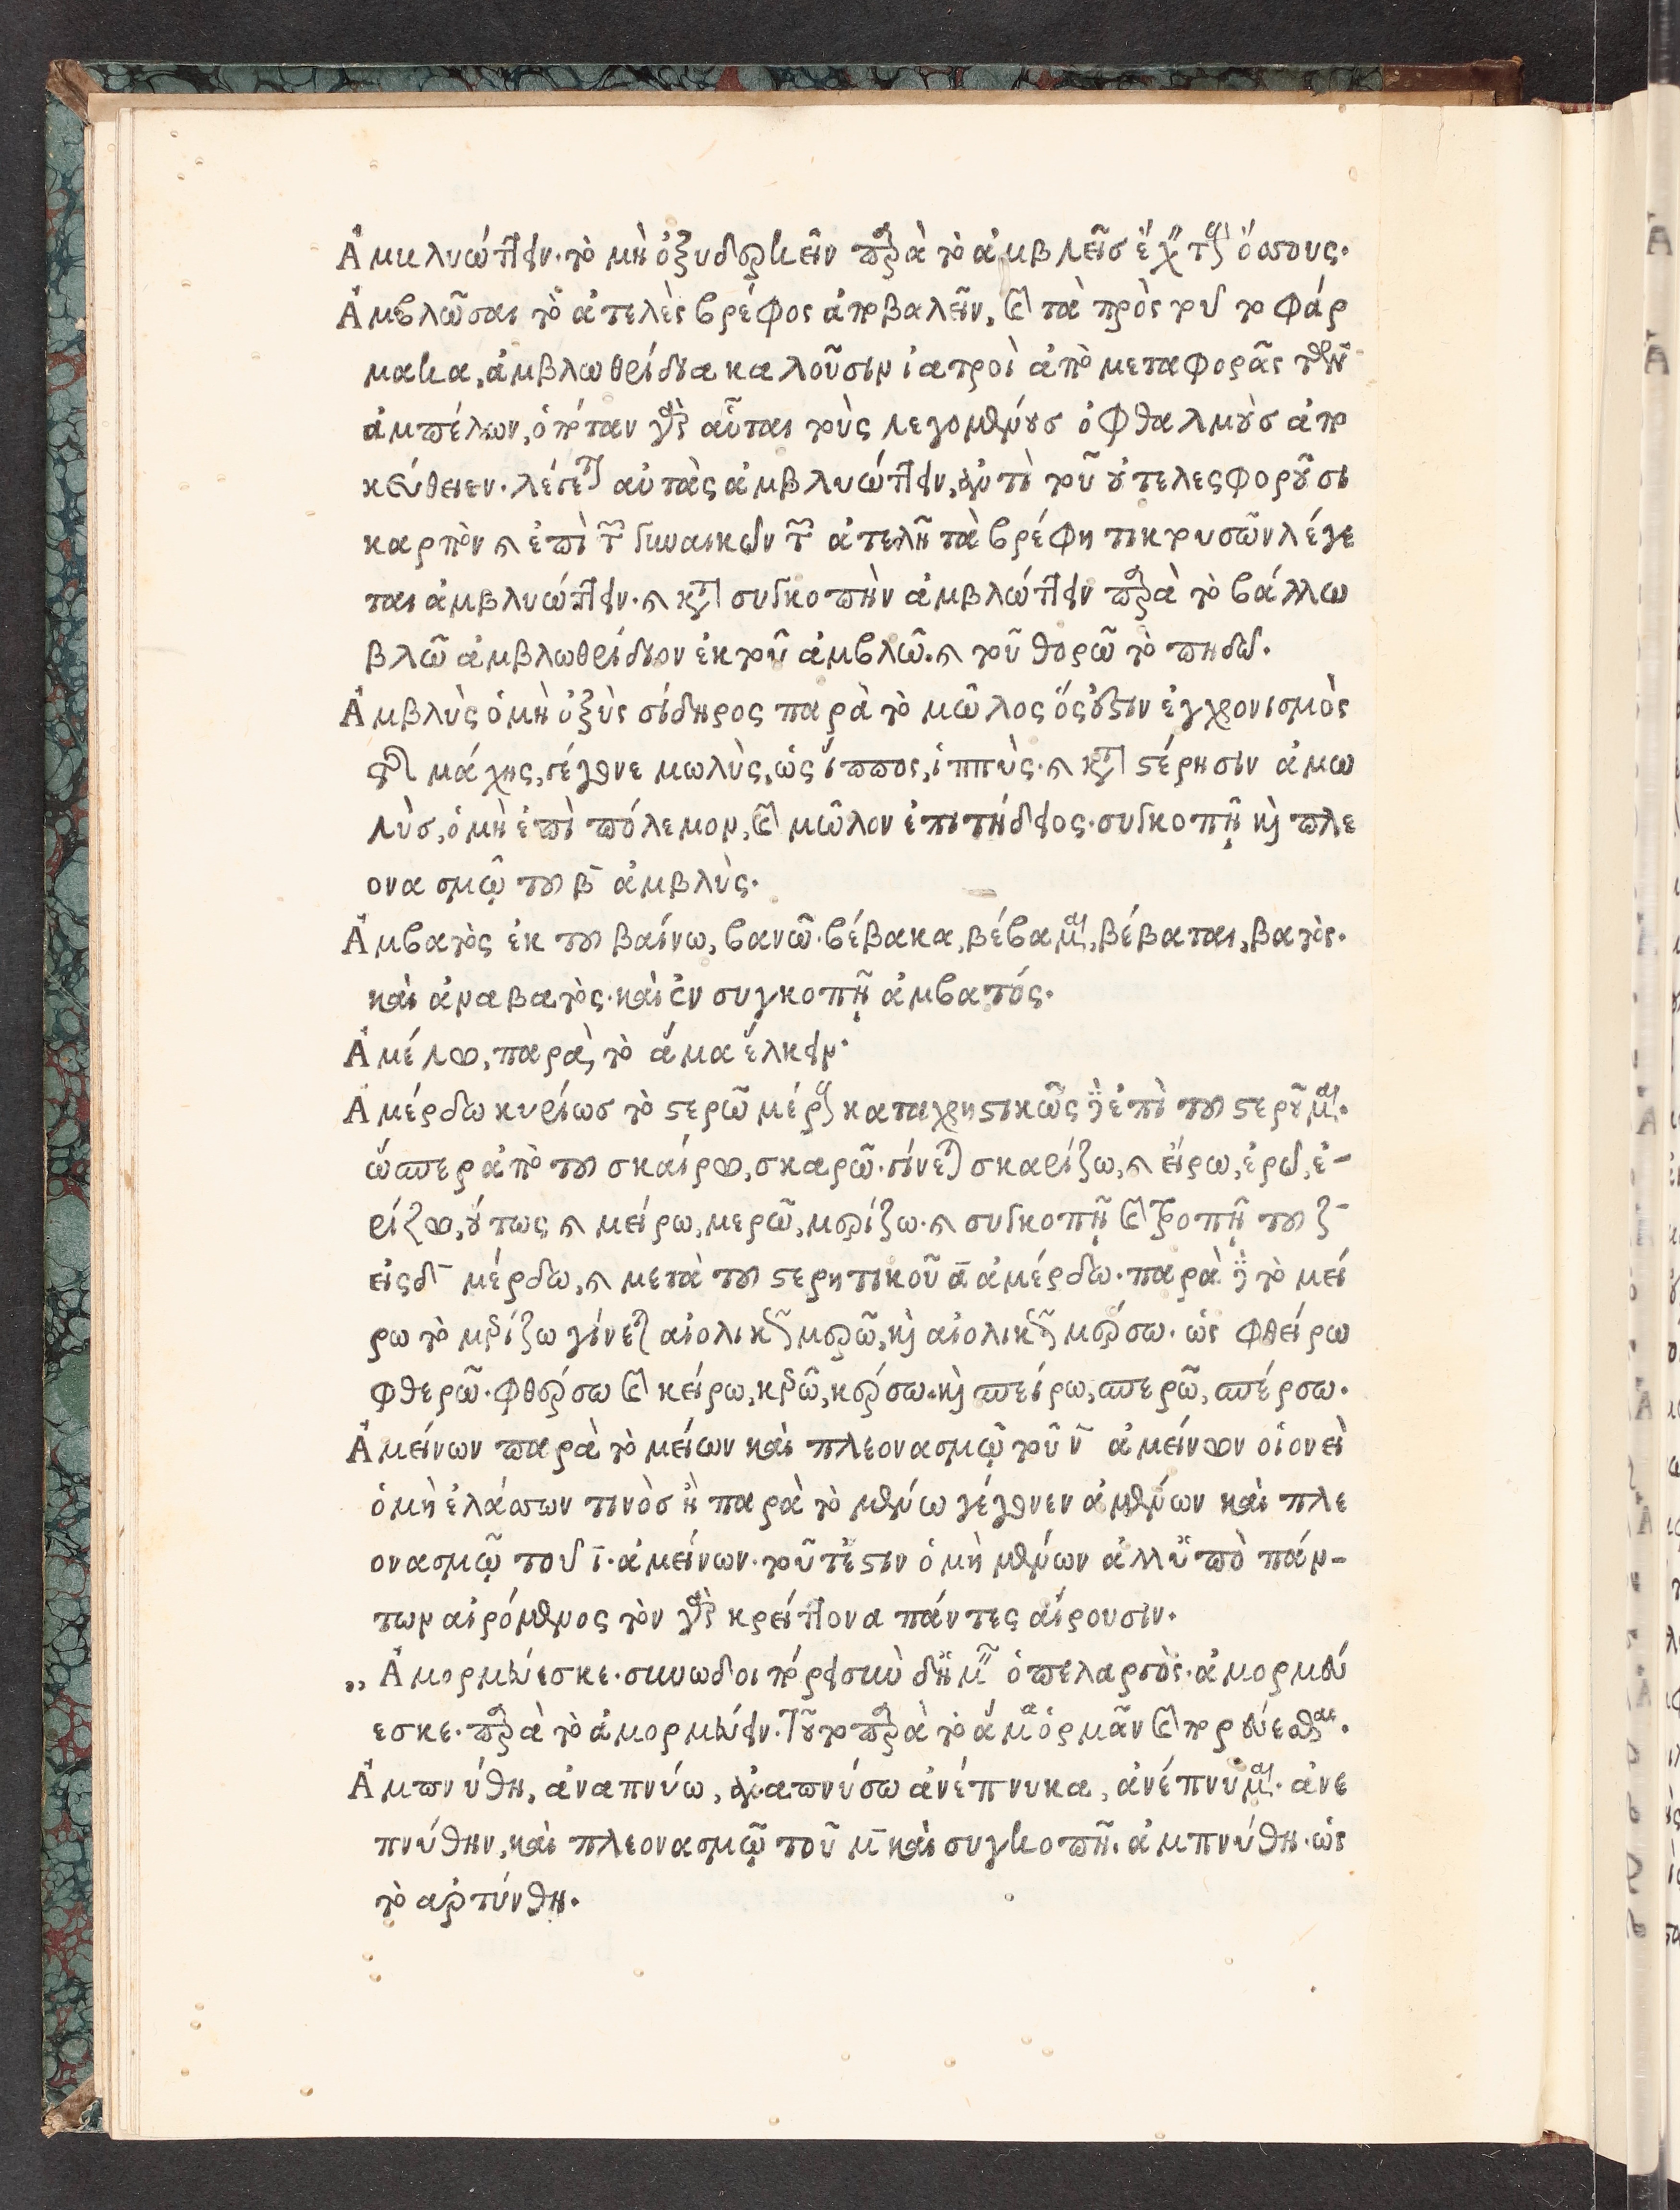 Ἀμβλυώττειν· τὸ μὴ ὀξυδερκεῖν παρὰ τὸ ἀμβλεῖσ ἔχειν τὰς ὄσσους·
Ἀμβλῶσαι τὸ ἀτελὲς βρέφος ἀποβαλεῖν, καὶ τὰ πρὸς τοῦτο φάρ
μακα, ἀμβλωθρίδια καλοῦσιν ἰατροὶ ἀπὸ μεταφορᾶς τῶν
ἀμπέλων, ὁπόταν γὰρ αὗται τοὺς λεγομένουσ ὀφθαλμοὺσ ἀπο
καύθειεν· λέγεται αὐτὰς ἀμβλυώττειν, ἀντὶ τοῦ οὐ τελεςφοροῦσι
καρπὸν καὶ ἐπὶ τῶν γυναικῶν τῶν ἀτελῆ τὰ βρέφη τικτουσῶν λέγε
ται ἀμβλυώττειν· καὶ κατὰ συγκοπὴν ἀμβλώττειν παρὰ τὸ βάλλω
βλῶ ἀμβλωθρίδιον ἐκ τοῦ ἀμβλῶ· καὶ τοῦ θορῶ τὸ πηδῶ·
Ἀμβλὺς ὁ μὴ ὀξὺς σίδηρος παρὰ τὸ μῶλος ὅς ἐστιν ἐγχρονισμὸς
τῆς μάχης, γέγονε μωλὺς, ὡς ἵππος, ἱππὺς· καὶ κατὰ στέρησιν ἀμω
λὺσ, ὁ μὴ ἐπὶ πόλεμον, καὶ μῶλον ἐπιτήδειος· συγκοπῇ καὶ πλε
ονασμῷ τοῦ β ἀμβλὺς·
Ἀμβατὸς ἐκ τοῦ βαίνω, βανῶ· βέβακα, βέβαμαι, βέβαται, βατὸς·
καὶ ἀναβατὸς· καὶ ἐν συγκοπῇ ἀμβατός·
Ἀμέλγω, παρὰ, τὸ ἅμα ἕλκειν·
Ἀμέρδω κυρίωσ τὸ στερῶ μέρους καταχρηστικῶς δὲ ἐπὶ τοῦ στεροῦμαι·
ὥσπερ ἀπὸ τοῦ σκαίρω, σκαρῶ· γίνεται σκαρίζω, καὶ εἴρω, ἐρῶ, ἐ-
ρίζω, οὕτως καὶ μείρω, μερῶ, μερίζω· καὶ συγκοπῇ καὶ τροπῇ τοῦ ζ
εἰς δ μέρδω, καὶ μετὰ τοῦ στερητικοῦ ᾱ ἀμέρδω· παρὰ δὲ τὸ μεί
ρω τὸ μερίζω γίνεται αἰολικῶς μερῶ, καὶ αἰολικῶς μέρσω· ὡς φθείρω
φθερῶ· φθέρσω καὶ κείρω, κερῶ, κέρσω· καὶ σπείρω, σπερῶ, σπέρσω·
Ἀμείνων παρὰ τὸ μείων καὶ πλεονασμῷ τοῦ ν ἀμείνων οἱονεὶ
ὁ μὴ ἐλάσσων τινὸσ ἢ παρὰ τὸ μένω γέγονεν ἀμένων καὶ πλε
ονασμῷ τοῦ ι· ἀμείνων· τοῦτέστιν ὁ μὴ μένων ἀλλ' ὑπὸ πάν-
των αἱρόμενος τὸν γὰρ κρείττονα πάντες αἱροῦσιν·
„ Ἀμορμεύεσκε· συνωδοιπόρει σὺν δὴ μιν ὁ πελαργὸς· ἀμορμεύ
εσκε· παρὰ τὸ ἀμορμεύειν· τοῦτο παρὰ τὸ ἅμα ὁρμᾶν καὶ πορεύεσθαι·
Ἀμπνύθη, ἀναπνύω, διαπνύσω ἀνέπνυκα, ἀνέπνυμαι· ἀνε
πνύθην, καὶ πλεονασμῷ τοῦ μ καὶ συγκοπῇ· ἀμπνύθη· ὡς
τὸ ἀρτύνθη·